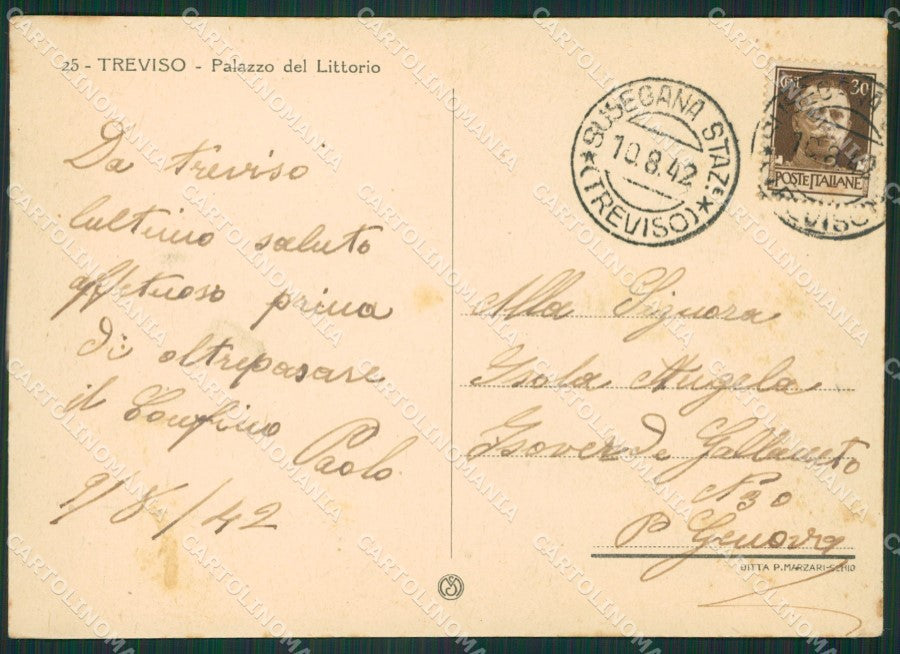 25 - TREVISO - Palazzo del Littorio
Da Treviso
lultimo saluto
affetuoso prima
di oltrepasare
il Confino
Paolo
9/8/42
SUSEGANA STAZ.
10.8.42
(TREVISO)
30
POSTE ITALIANE
10.8.42
TREVISO
Alla Signora
Isola Angela
Isoverde Gallaneto
N 30
P Genova
DITTA P. MARZARI-SCHIO
CARTOLINOMANIA